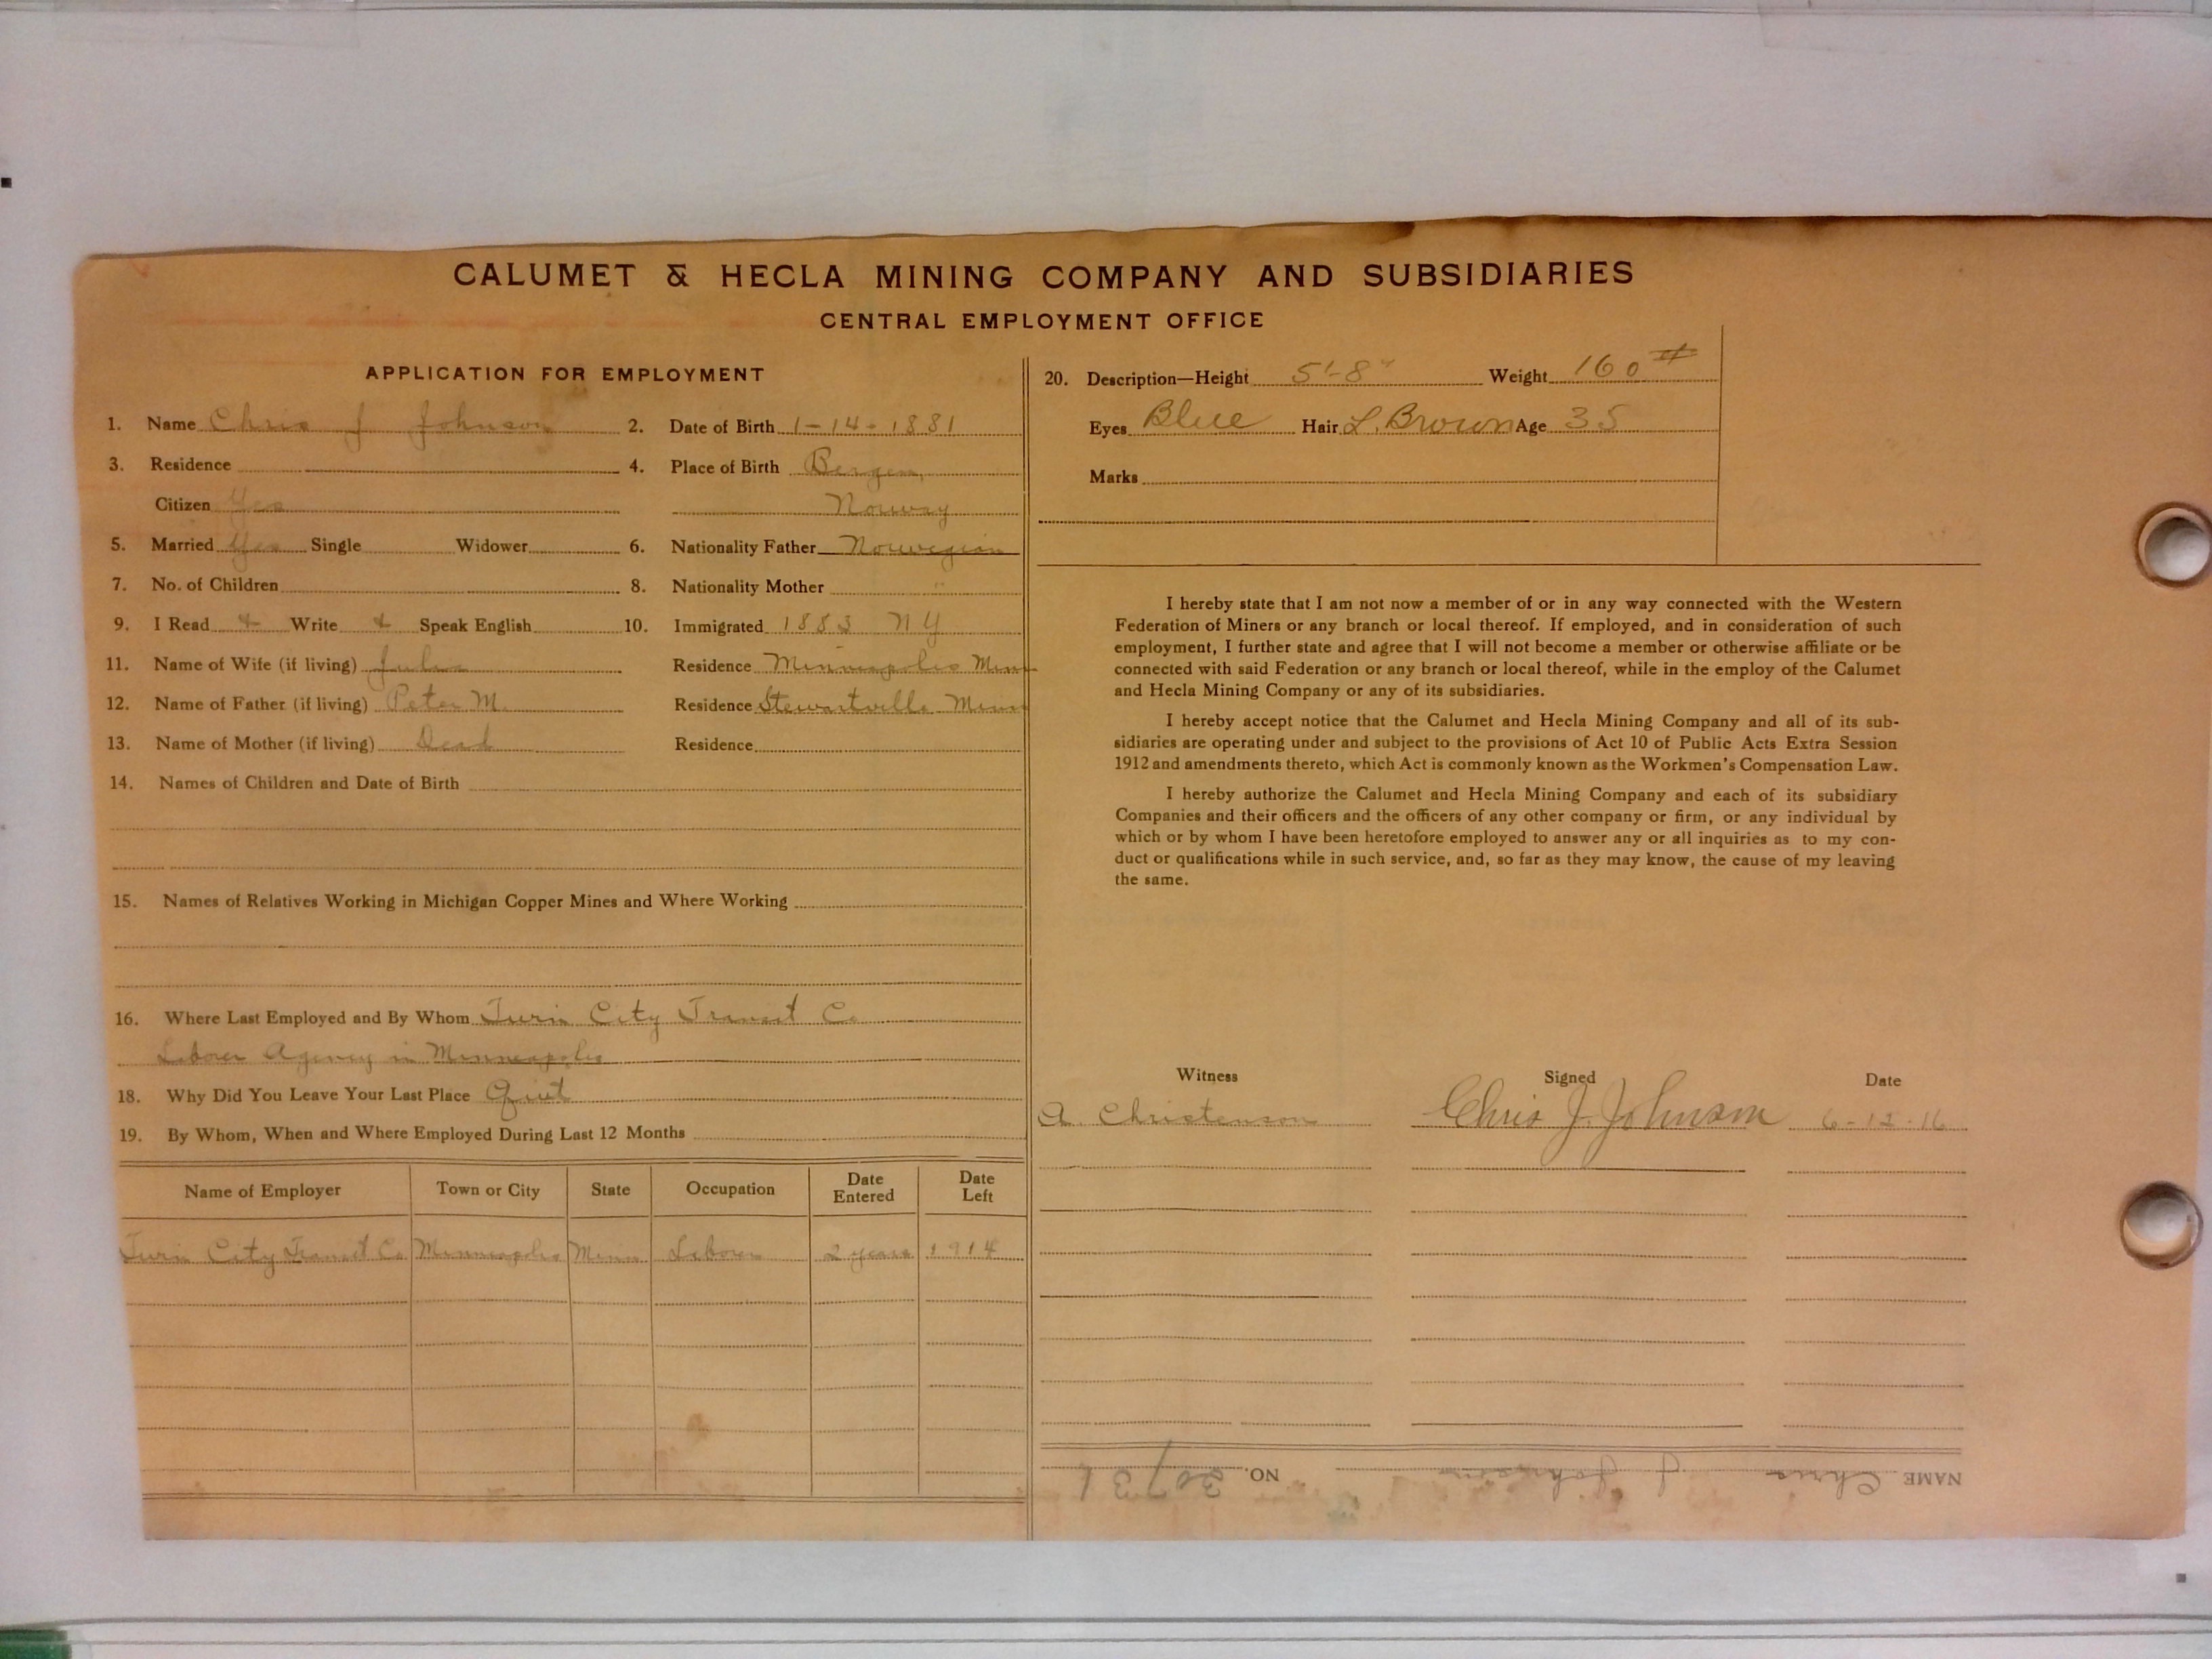 CALUMET & HECLA MINING COMPANY AND SUBSIDIARIES
CENTRAL EMPLOYMENT OFFICE
APPLICATION FOR EMPLOYMENT
1. Name Chris J Johnson 2. Date of Birth 1-14-1881
3. Residence 4. Place of Birth Bergen,
Citizen Yes Norway
5. Married Yes Single Widower 6. Nationality Father Norwegian
7. No. of Children 8. Nationality Mother "
9. I Read & Write & Speak English 10. Immigrated 1883 NY
11. Name of Wife (if living) Residence Minneapolis Minn
12. Name of Father (if living) Peter M. Residence Stewartville Minn
13. Name of Mother (if living) Dead Residence
14. Names of Children and Date of Birth
15. Names of Relatives Working in Michigan Copper Mines and Where Working
16. Where Last Employed and By Whom Twin City Transit Co
Labor Agency in Minneapolis
18. Why Did You Leave Your Last Place Quit
19. By Whom, When and Where Employed During Last 12 Months
Name of Employer Town or City State Occupation Date Entered Date Left
Twin City Transit Co Minneapolis Minn Labor 2 years 1914
20. Description—Height 5'-8" Weight 160#
Eyes Blue Hair L. Brown Age 35
Marks
I hereby state that I am not now a member of or in any way connected with the Western
Federation of Miners or any branch or local thereof. If employed, and in consideration of such
employment, I further state and agree that I will not become a member or otherwise affiliate or be
connected with said Federation or any branch or local thereof, while in the employ of the Calumet
and Hecla Mining Company or any of its subsidiaries.
I hereby accept notice that the Calumet and Hecla Mining Company and all of its sub-
sidiaries are operating under and subject to the provisions of Act 10 of Public Acts Extra Session
1912 and amendments thereto, which Act is commonly known as the Workmen's Compensation Law.
I hereby authorize the Calumet and Hecla Mining Company and each of its subsidiary
Companies and their officers and the officers of any other company or firm, or any individual by
which or by whom I have been heretofore employed to answer any or all inquiries as to my con-
duct or qualifications while in such service, and, so far as they may know, the cause of my leaving
the same.
Witness Signed Date
A. Christenson Chris J. Johnson 6-12-16
NAME Chris J Johnson NO.